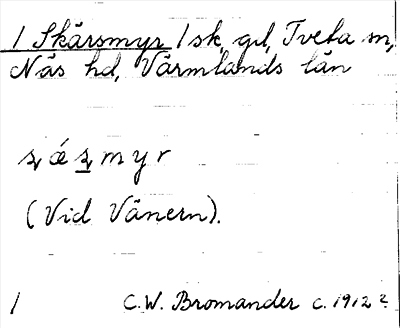 1 Skärsmyr 1 sk, gd, Tveta sn,
Näs hd, Värmlands län
ʂǽʂmyr
(Vid Vänern).
1 C.W. Bromander c. 1912 ?